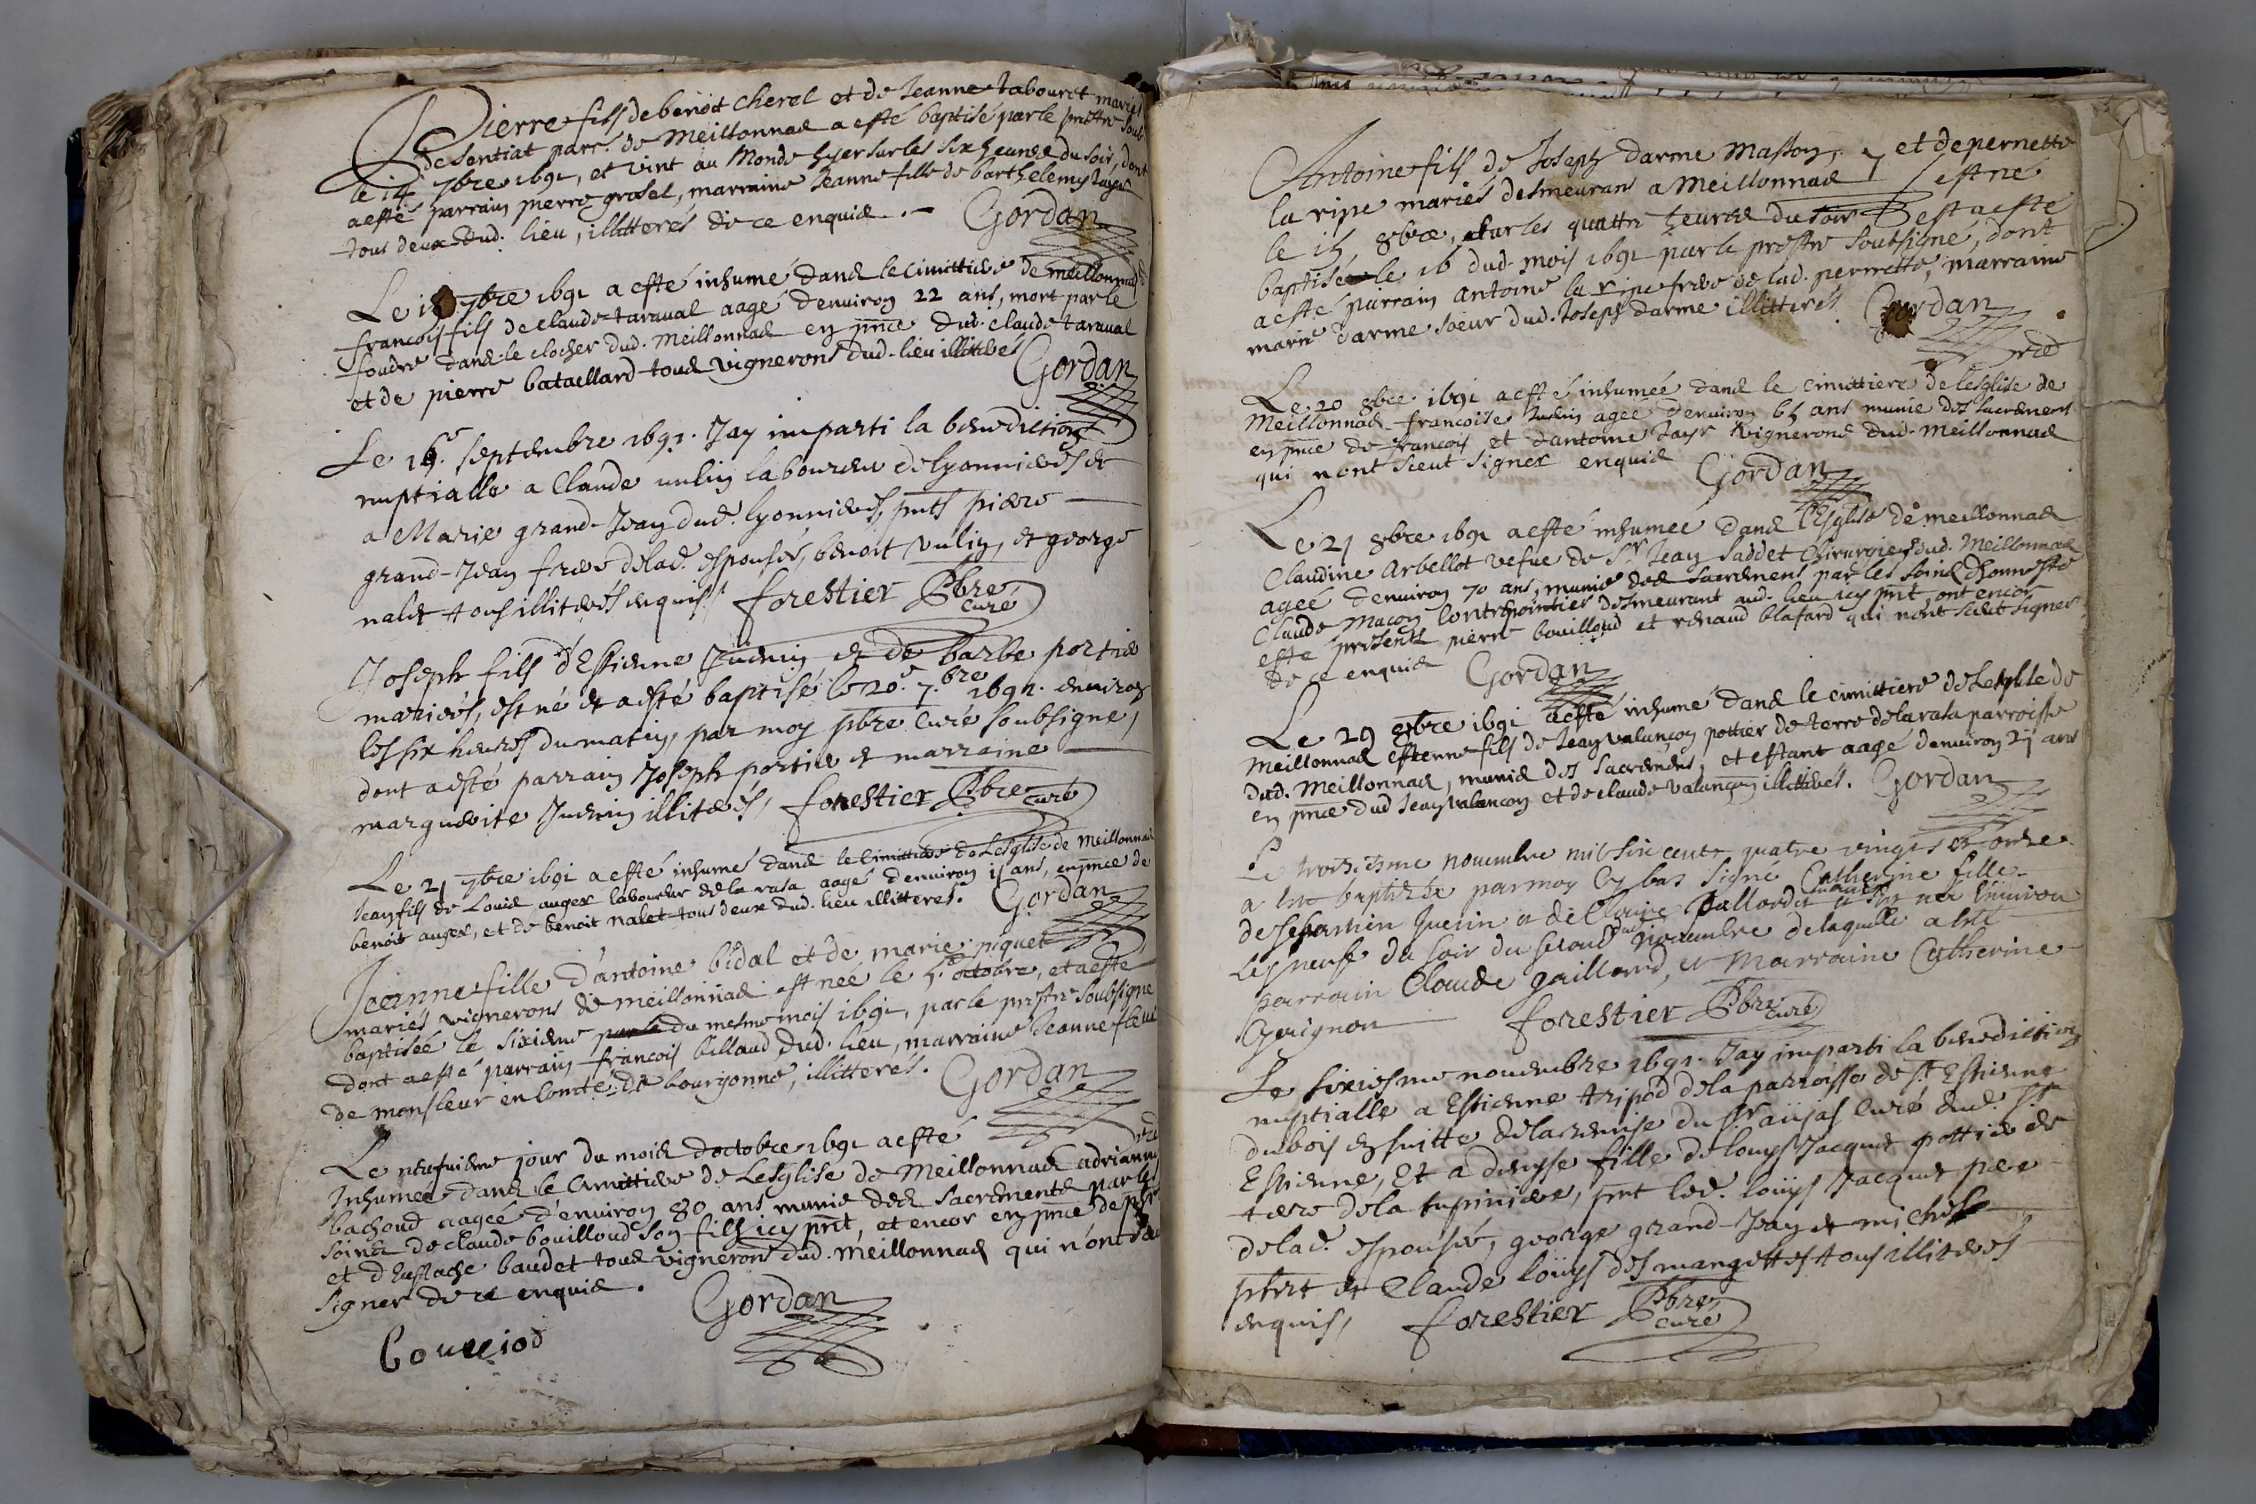 Pierre fils de benoit cherel et de Jeanne tabouret mariés
de Sentiat parr. de Meillonnad a esté baptisé par le prestre soub
le 14 7bre 1691, et vint au Monde hyer sur les six heures du soir, dont
a esté parrain pierre grosel, marraine Jeanne fille de barthelemy Jayr
tous deux dud. lieu, illitteres de ce enquid .-
Gordan
Le 18 7bre 1691 a esté inhumé dans le cimittiere de meillonnad
francois fils de claude taraual aagé denuiron 22 ans, mort par le
foudre dans le clocher dud. Meillonnad en pnce dud. claude taraual
et de pierre bataillard tous vignerons dud. lieu illitterés
Gordan
Le septembre 1691. Jay imparti la benediction
nuptialle a Claude vulin laboureur de lyonnieres et
a Marie grand-Jean dud. lyonnieres, pnts piere
grand-Jean frere de lad. espousée, benoit vulin, et george
nalet tous illiterés enquis,
forestier Pbre
curé
Joseph fils d'Estienne Judrin et de barbe portier
mariés, est né et a esté baptisé le 20e 7.bre 1691. enuiron
les six heures du matin, par moy pbre curé soubsigné,
dont a esté parrain Joseph portier et marraine
marguerite Judrin illiterés,
forestier Pbre
curé
Le 21 7bre 1691 a esté inhumé dans le Cimittiere de Lesglise de Meillonnad
Jean fils de Louis auger laboureur de la rasa aagé denuiron 15 ans, en pnce de
benoit auger, et de benoit nalet tous deux dud. lieu illitteres.
Gordan
Jeanne fille d'antoine bidal et de marie piquet
mariés vignerons de meillonnad est née le 5e octobre, et a esté
baptisée le sixieme du mesme mois 1691, par le prestre soubsigne
dont a esté parrain francois billaud dud. lieu, marraine Jeanne
de monsieur en comté de bourgonne, illitterés.
Gordan
Le neufuieme jour du mois doctobre 1691 a esté
Inhumée dans le Cimittiere de Lesglise de Meillonnad adrianne
bachoud aagée d'enuiron 80 ans munie des sacrements par les
soins de claude bouilloud son fils icy prnt, et encor en pnce de
et d'Eustache baudet tous vignerons dud. Meillonnad qui n'ont
signer de ce enquid.
Gordan
Antoine fils de Joseph darme Masson, et de pernette
la ripe mariés desmeurans a Meillonnad est né
le 15 8bre, sur les quattre heures du soir et a esté
baptisé le 16 dud. mois 1691 par le prestre soubsigné, dont
a esté parrain antoine la ripe frere de lad. pernette, marraine
marie darme soeur dud. Joseph darme illitterés
Gordan
Le 20 8bre 1691 a esté inhumée dans le cimittiere de lesglise de
Meillonnad francoise Judrin agee denuiron 65 ans munie des sacremens
en pnce de francois et dantoine Jayr vignerons dud. Meillonnad
qui n'ont sceut signer enquid
Gordan
Le 21 8bre 1691 a esté inhumée dans l'Esglise de meillonnad
Claudine Arbellot vefue de Sr. Jean saddet Chirurgien dud. Meillonnad
agée denuiron 70 ans, munie des sacremens par les soins dhonneste
Claude Macon Contrepointier desmeurant aud. lieu icy prnt, ont encor
esté presents pierre bouilloud et renaud blafard qui n'ont sceut signer
de ce enquid
Gordan
Le 29 8bre 1691 a esté inhumé dans le cimittiere de Lesglise de
Meillonnad estienne fils de Jean valançon pottier de terre de la rasa parroisse
dud. Meillonnad, munid des sacremens, et estant aagé denuiron 25 ans
en pnce dud Jean valancon et de claude valançon illitterés.
Gordan
Le troisiesme nouembre mil six cents quatre vingts et onze
a este baptisée par moy cy bas signé Catherine fille
de sebastien Guerin et de Claire mariés et est née enuiron
les neuf du soir du second dud nouembre de laquelle a esté
parrain Claude gaillard, et Marraine Catherine
forestier Pbre
curé
Le sixiesme nouembre 1691. Jay imparti la benediction
nuptialle a Estienne tripod de la parroisse de st. Estienne
dubois en suitte de la remise du Sr. curé dud. St
Estienne, Et a denyse fille de louys Jacquet pottier de
terre de la tupiniere, pnt led. louys Jacquet pere
de lad. espousée, george grand-Jean et michel
et Claude louys des mangettes tous illiterés
enquis,
forestier Pbre
curé